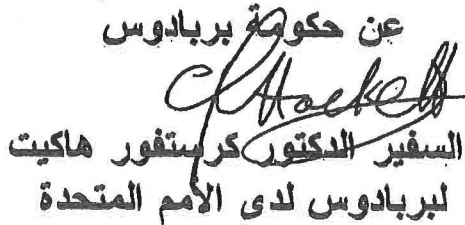 عن حكومة بربادوس
C Hackett
السفير الدكتور كرستفور هاكيت
لبربادوس لدى الأمم المتحدة